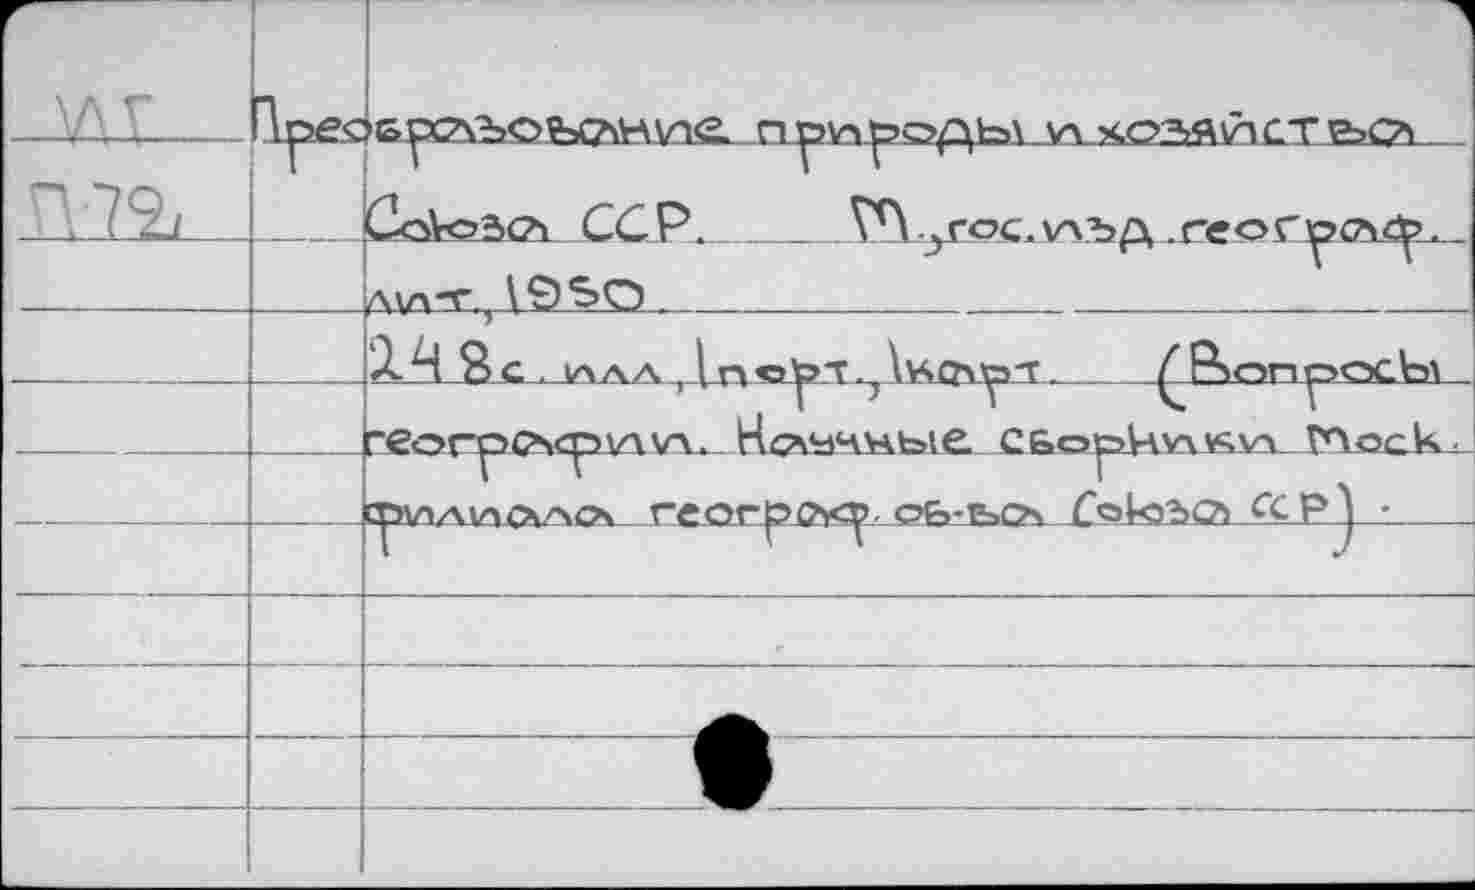 ИГ Преобразование природы и хозяйства
П-79, Союза ССР. М.,гос.изд.географ.
лит., 1950.
248с. илл, 1порт., 1карт. (Вопросы
географии. Научные сборники Моск.
филиала географ. об-ва Союза ССР).